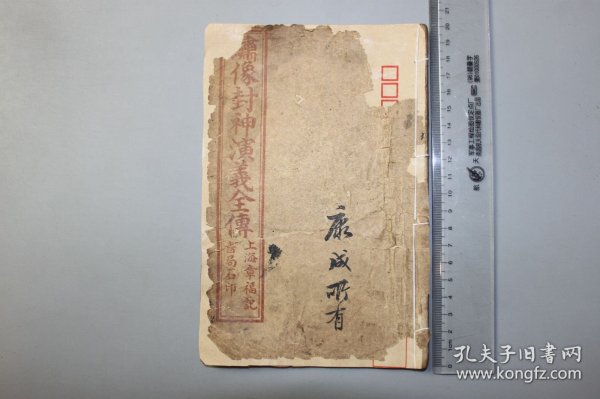 繡像封神演義全傳
上海章福記
書局石印
康成所有
孔夫子旧书网
www.kongfz.com